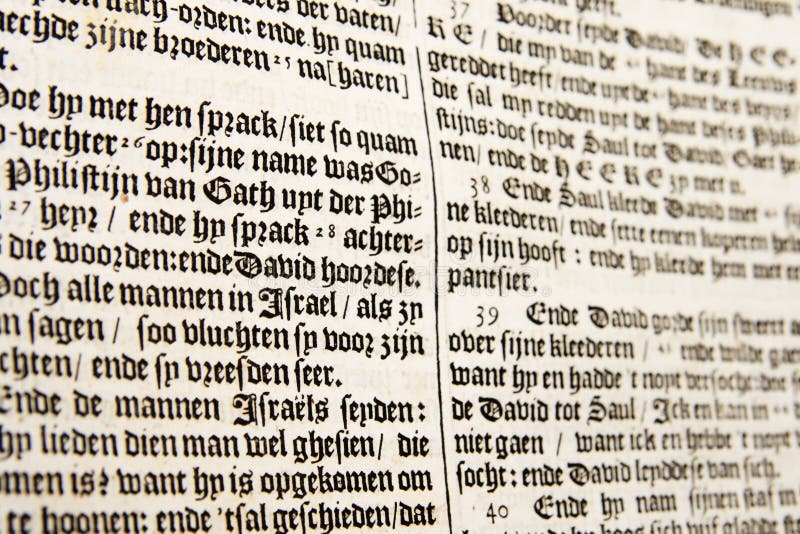 nach-orden: ende hy quam
zijne broederen 25 na[haren]
t.
Doe hy met hen sprack/siet so quam
vechter 26 op: sijne name was Go-
Philistijn van Gath uyt der Phi-
27 heyr / ende hy sprack 28 achter-
die woorden: ende David hoordese.
Doch alle mannen in Israel / als zy
sagen / soo vluchten sy voor zijn
ende sy vreesden seer.
Ende de mannen Israëls seyden:
lieden dien man wel ghesien / die
is? want hy is opgekomen om
te hoonen: ende 'tsal geschieden/dat
37 Voorder seyde David/ De HEE-
RE / die my van de hant des Leeuws
geredder heeft/ende uyt de hant des
die sal my redden uyt de hant deses Phili-
stijns: doe seyde Saul tot David/ Gaet
nen/ ende de HEERE zy met u.
38 Ende Saul kleede David met
ne kleederen/ ende sette eenen koperen
op sijn hooft : ende hy kleede hem met
pantsier.
39 Ende David gorde sijn sweert
over sijne kleederen / ende wilde gaen
want hy en hadde 't noyt versocht: doe
de David tot Saul / Ick en kan in
niet gaen / want ick en hebbe 't noyt
socht: ende David leydese van sich.
40 Ende hy nam sijnen staf in